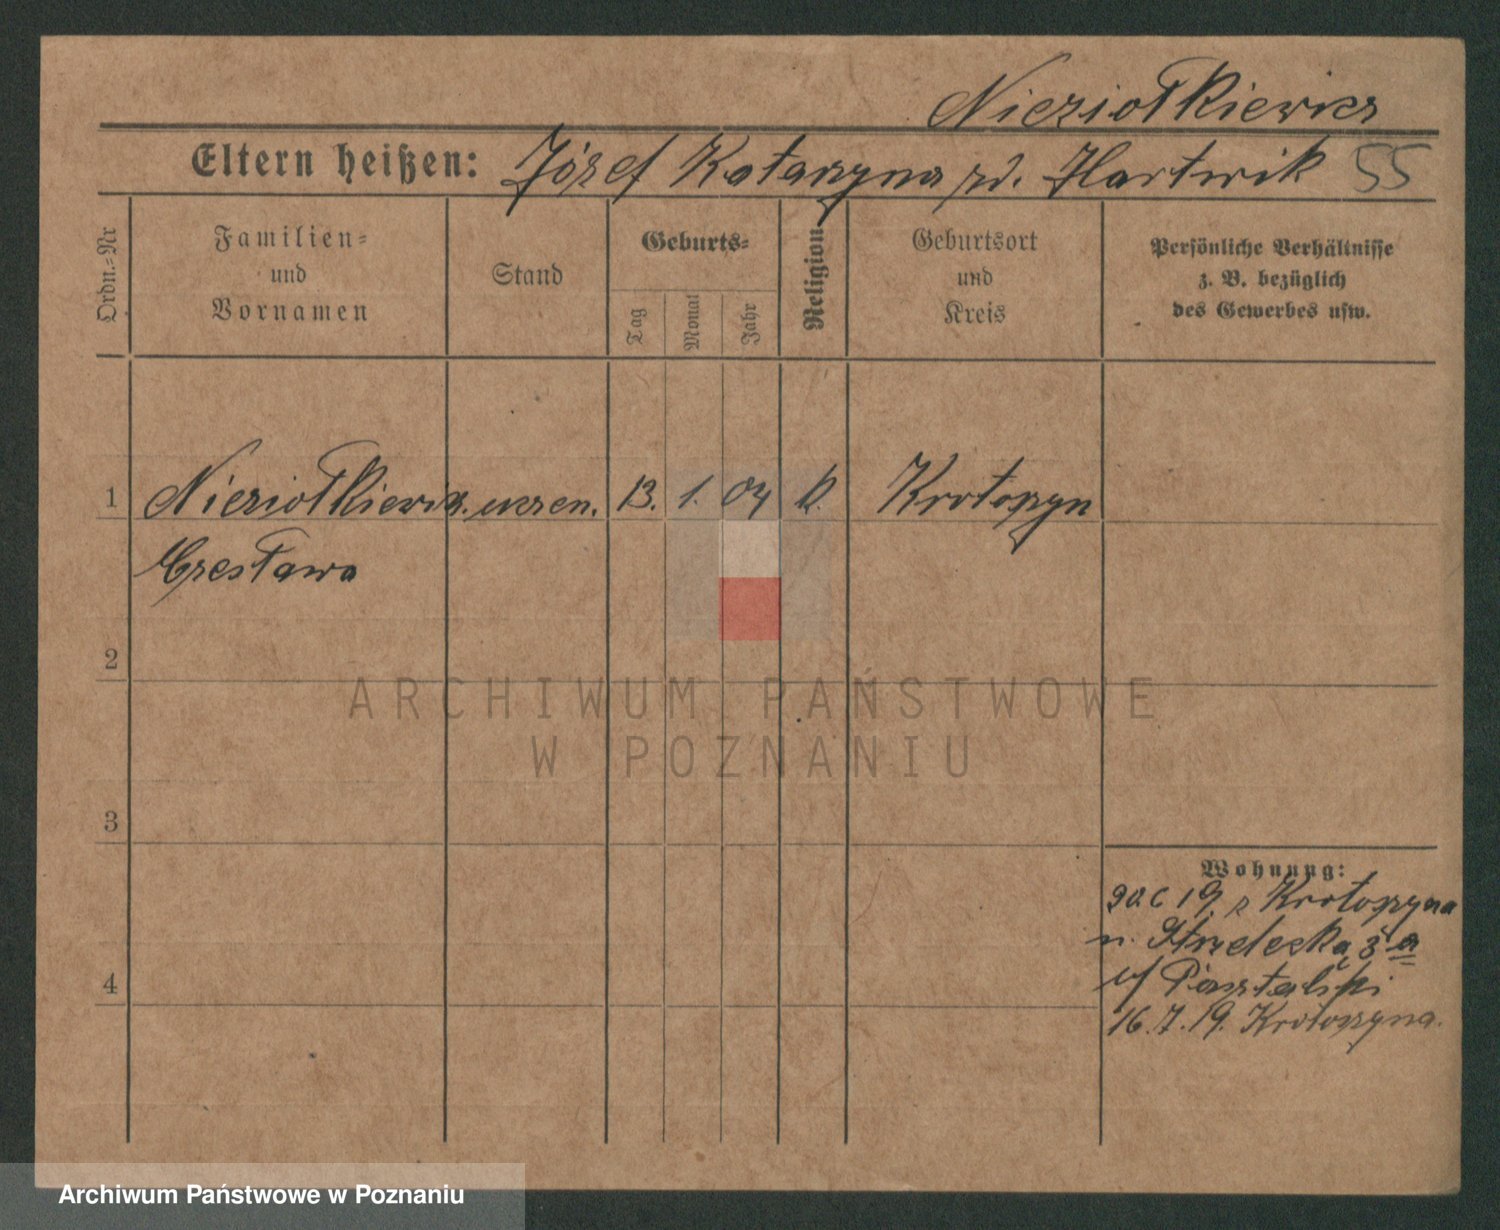 Nieziołkiewicz
Eltern heißen: Józef Katarzyna zd. Hartwik 55
Ordn.-Nr
Familien-
und
Vornamen
Stand
Geburts-
Tag
Monat
Jahr
Religion
Geburtsort
und
Kreis
Persönliche Verhältnisse
z. B. bezüglich
des Gewerbes usw.
1 Nieziołkiewicz. uczen. 13. 1. 04 k. Krotoszyn
Czesława
2
3
4
Wohnung:
19 z Krotoszyna
Strzelecka 3 a
16.7.19. Krotoszyna.
ARCHIWUM PAŃSTWOWE
W POZNANIU
Archiwum Państwowe w Poznaniu